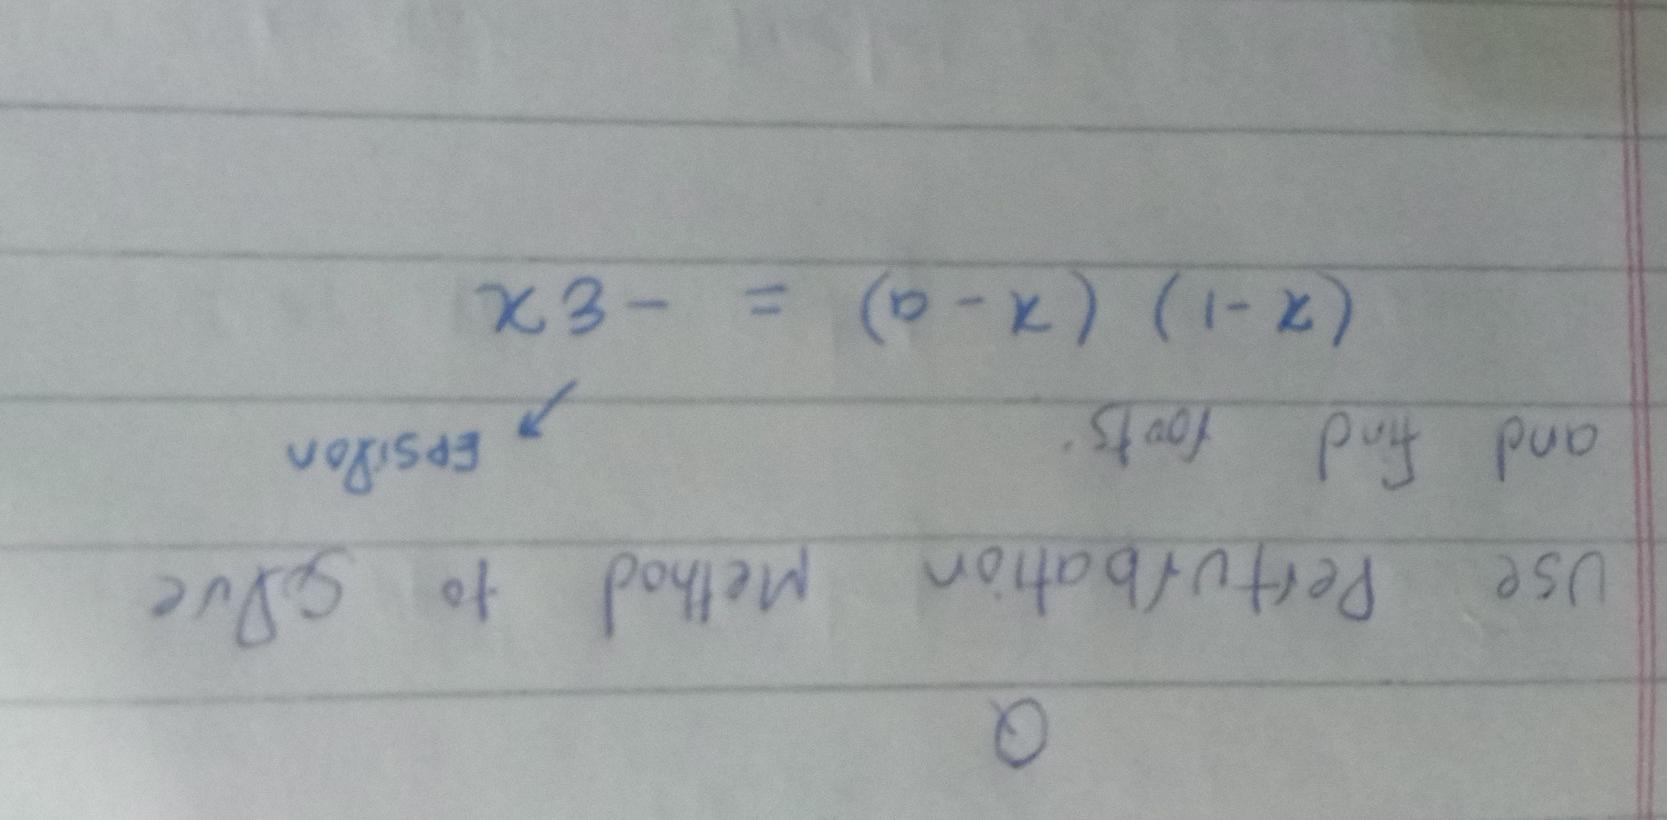 Q
Use Perturbation Method to Solve
and find roots.
Epsilon
(x-1) (x-a) = -εx